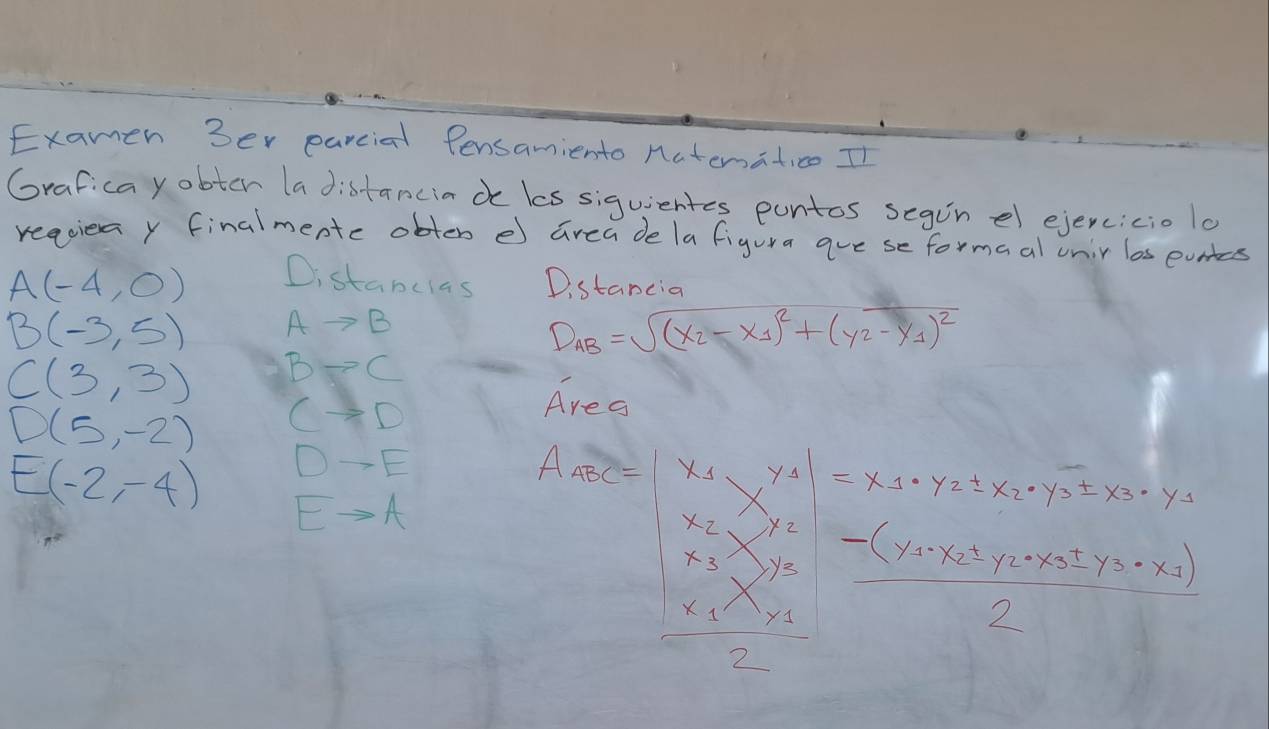 Examen 3er parcial Pensamiento Matemático II
Grafica y obten la distancia de los siguientes puntos según el ejercicio lo
requiera y finalmente obten el área de la figura que se forma al unir los puntos
A(-4,0)
B(-3,5)
C(3,3)
D(5,-2)
E(-2,-4)
Distancias
A → B
B → C
C → D
D → E
E → A
Distancia
D_AB = √(x2 - x1)² + (y2 - y1)²
Área
A_ABC = | x1 y1 | = x1 • y2 ± x2 • y3 ± x3 • y1
x2 y2
x3 y3 -(y1 • x2 ± y2 • x3 ± y3 • x1)
x1 y1 2
2